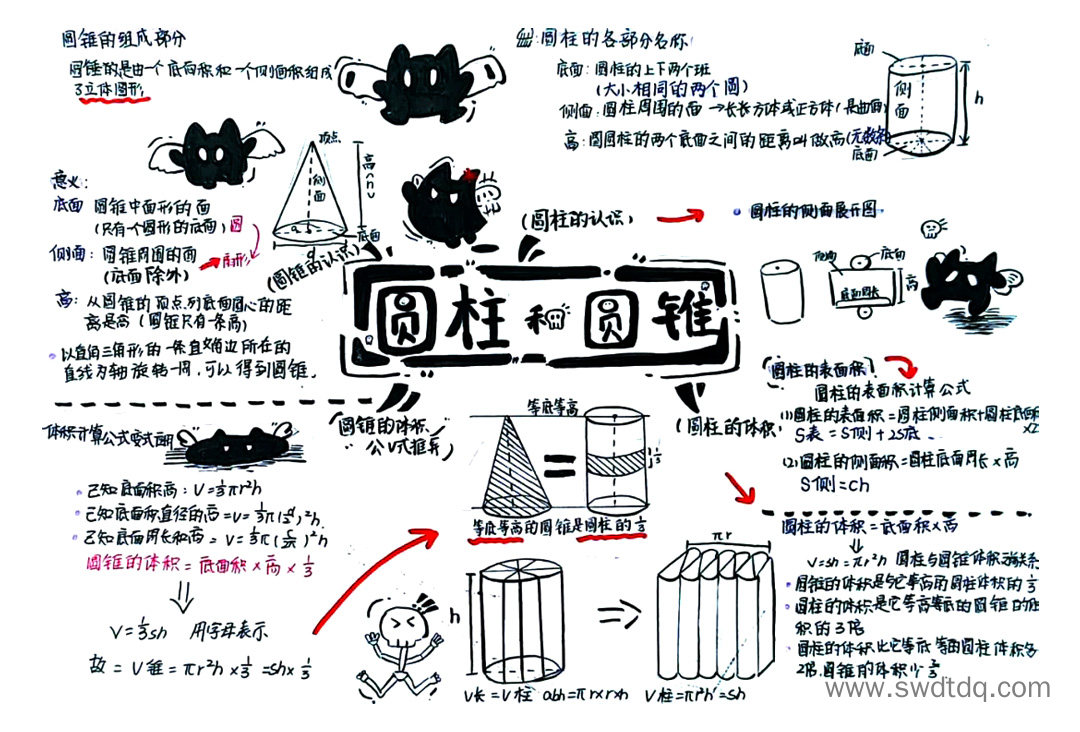 圆锥的组成部分
圆锥的是由一个底面积和一个侧面积组成
的立体图形
顶点
高(h)
侧面
底面
意义:
底面 圆锥中面形的面
(只有一个圆形的底面) 圆
侧面: 圆锥周围的面
(底面除外) 扇形
高: 从圆锥的顶点到底面圆心的距
离是高 (圆锥只有一条高)
以直角三角形的一条直角边所在的
直线为轴旋转一周,可以得到圆锥。
(圆锥的认识)
圆柱的各部分名称
底面: 圆柱的上下两个
(大小相同的两个圆)
侧面: 圆柱周围的面 → 长方体或正方体(是曲面)
高: 圆圆柱的两个底面之间的距离叫做高(无数条)
底面
侧面
h
底面
(圆柱的认识)
圆柱的侧面展开图
底面
底面周长
高
圆柱和圆锥
(圆柱的表面积)
圆柱的表面积计算公式
(1)圆柱的表面积=圆柱侧面积+圆柱底面积×2
S表=S侧+2S底
(2)圆柱的侧面积=圆柱底面周长×高
S侧=ch
(圆柱的体积)
圆柱的体积=底面积×高
V=sh=πr²h 圆柱与圆锥体积关系
圆锥的体积是与它等高的圆柱体积的1/3
圆柱的体积是它等高等底的圆锥的体
积的3倍
圆柱的体积比它等底等高圆柱体积多
2倍.圆锥的体积少2/3
(圆锥的体积
公式推导
等底等高
1/3
等底等高的圆锥是圆柱的1/3
体积计算公式变式
已知底面积高: V=1/3πr²h
已知底面积直径的高=V=1/3π(d/2)²h
已知底面周长和高=V=1/3π(c/2π)²h
圆锥的体积=底面积×高×1/3
V=1/3sh 用字母表示
故=V锥=πr²h×1/3=sh×1/3
h
πr
V长=V柱 abh=π×r×r×h
V柱=πr²h=sh
www.swdtdq.com